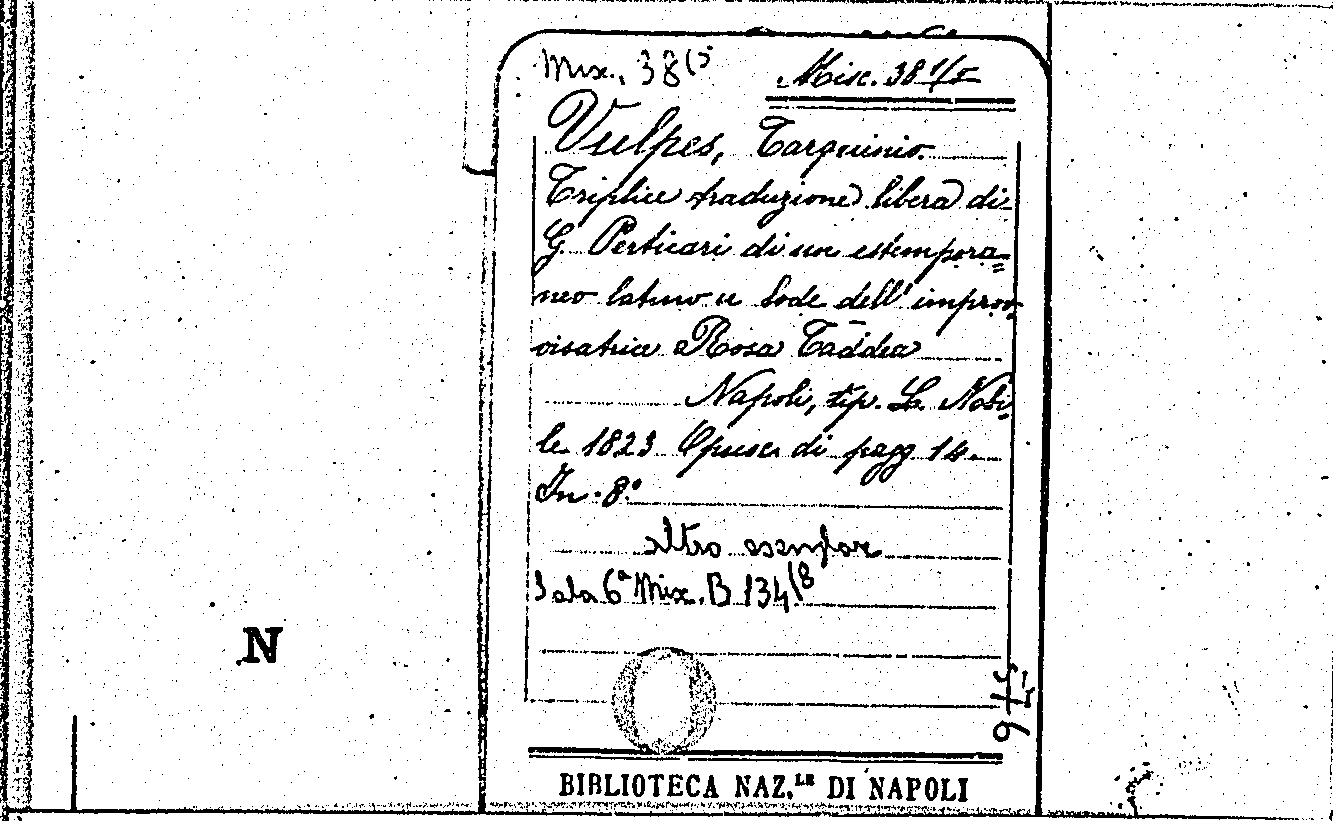 Mix., 38(5
Misc. 38 1/5
Vulpes, Tarquinio.
Triplice traduzione libera di
G. Perticari di un estempora=
neo latino u lode dell' improv-
visatrice Rosa Taddea
Napoli, tip. La Nobi-
le 1823 Opusc. di pagg 14.
In-8.°
altro esemplar
Sala 6ª Mix. B 134(8
N
BIBLIOTECA NAZ.LE DI NAPOLI